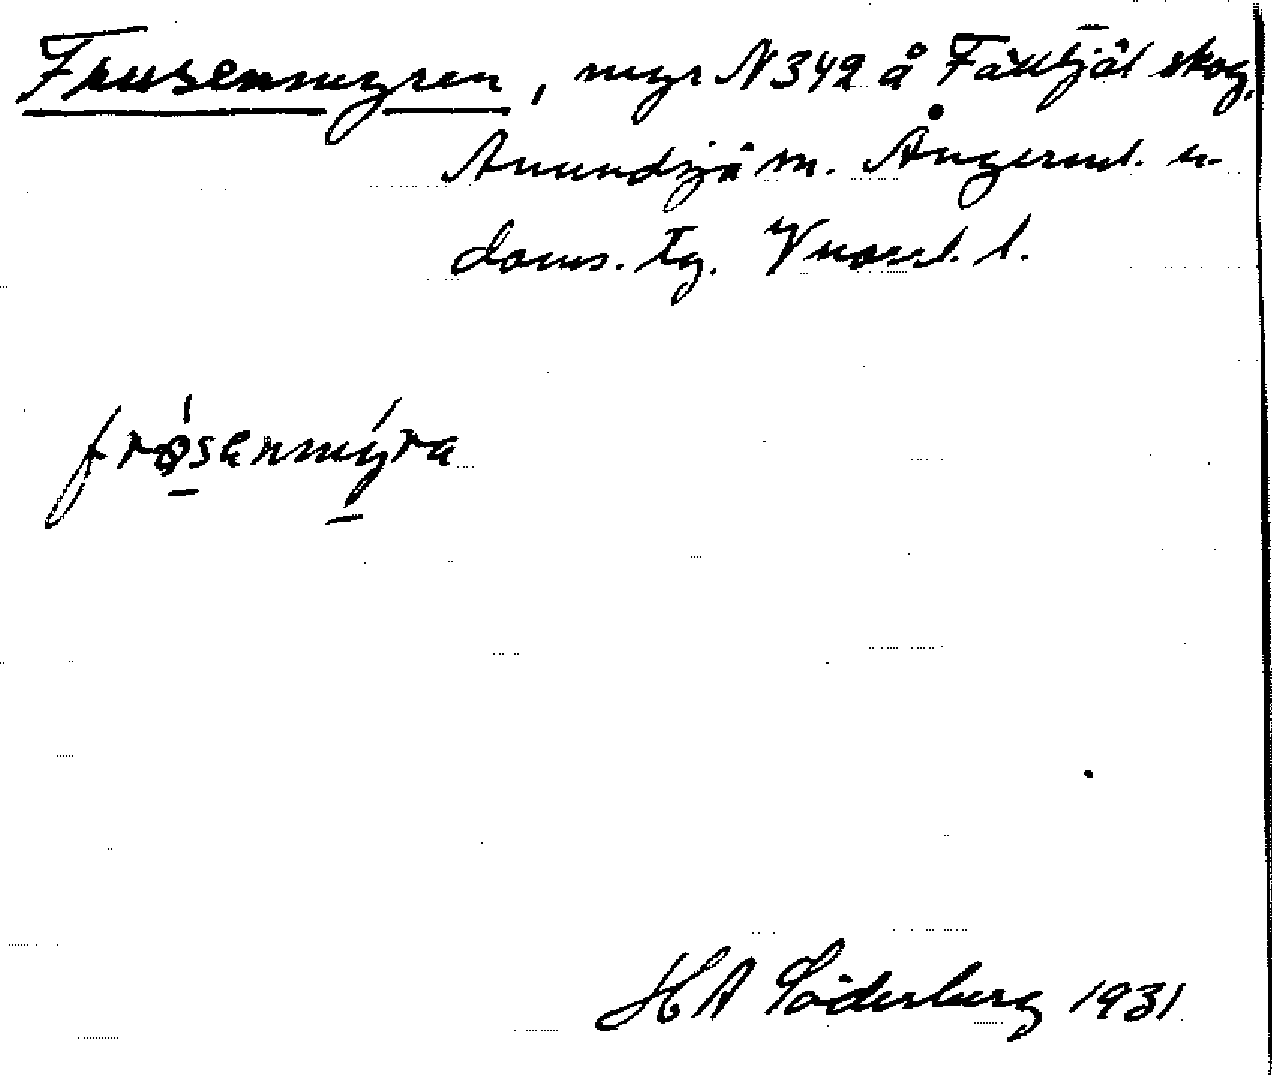 Frusenmyren, myr N 342 å Fälltjäl skog,
Anundsjö sn. Ångerml. n.
doms. tg. Vnorrl. l.
frøsenmyra
H A Söderberg 1931